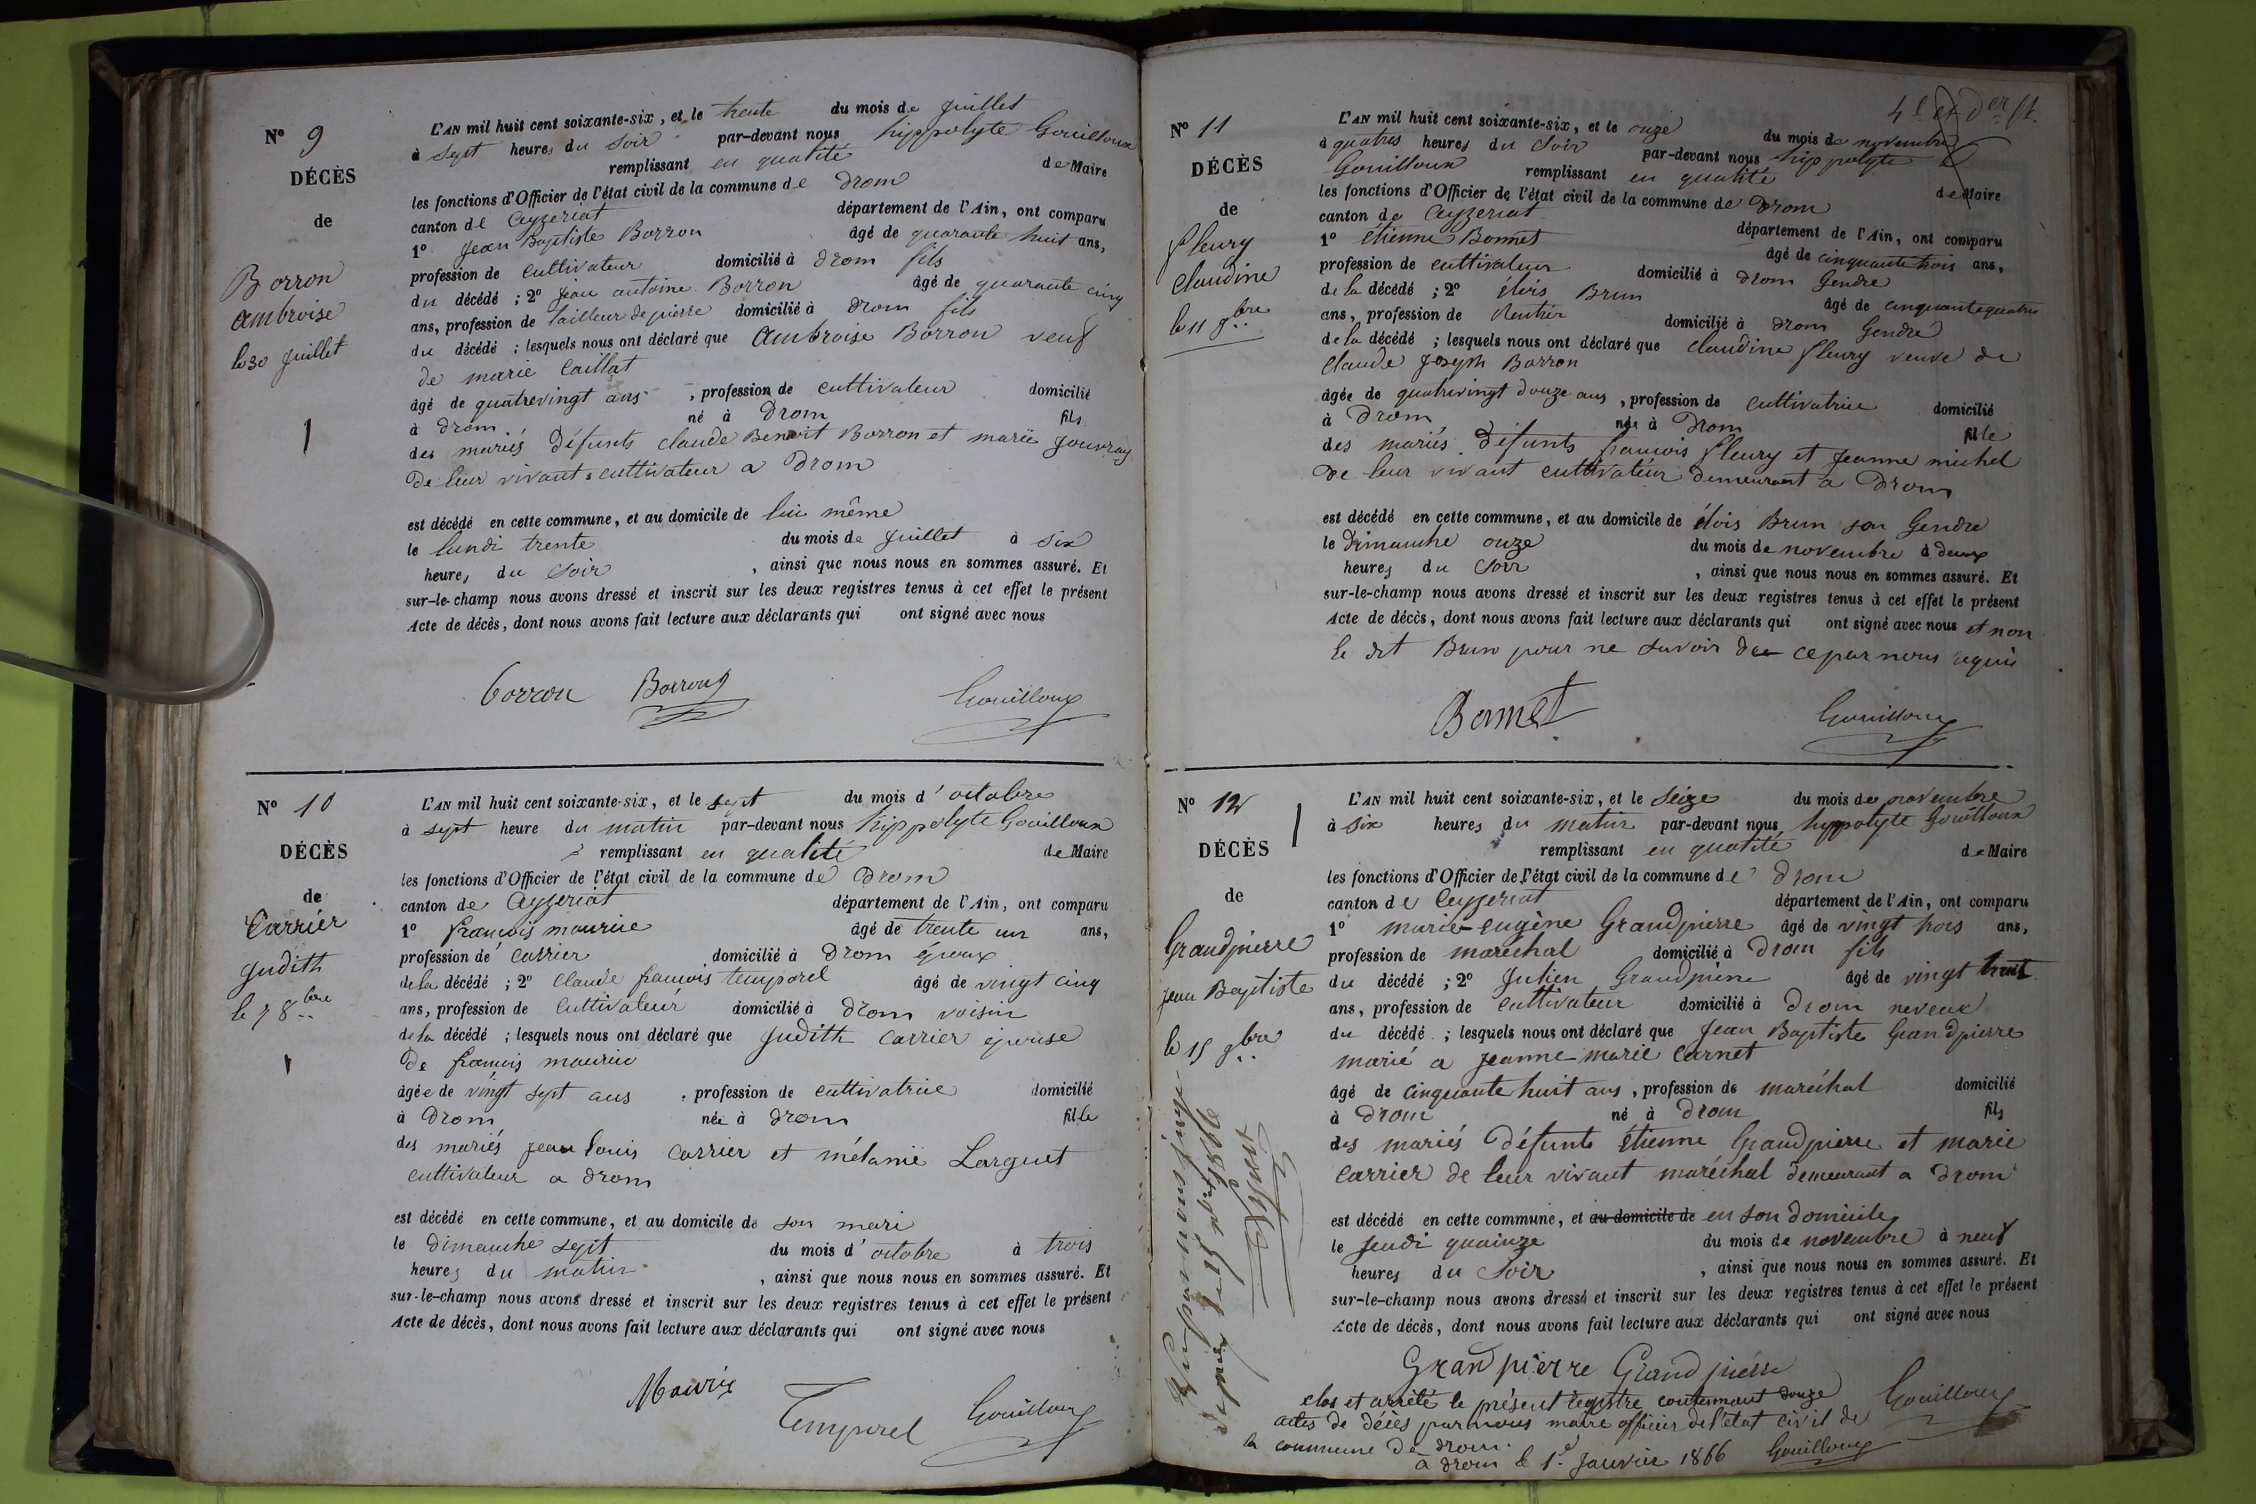 N° 9
DÉCÈS
de
Borron
ambroise
le 30 juillet
L'AN mil huit cent soixante-six, et le trente du mois de juillet
à sept heures du soir par-devant nous hippolyte Gouilloux
remplissant en qualité de Maire
les fonctions d'Officier de l'état civil de la commune de Drom
canton de Ceyzeriat département de l'Ain, ont comparu
1° Jean Baptiste Borron âgé de quarante huit ans,
profession de cultivateur domicilié à Drom fils
du décédé ; 2° Jean antoine Borron âgé de quarante cinq
ans, profession de tailleur de pierre domicilié à Drom fils
du décédé ; lesquels nous ont déclaré que Ambroise Borron veuf
de marie Caillat
âgé de quatrevingt ans, profession de cultivateur domicilié
à Drom né à Drom fils
des mariés défunts claude Benoit Borron et marie Jouvray
de leur vivant cultivateur a Drom
est décédé en cette commune, et au domicile de lui même
le lundi trente du mois de juillet à six
heures du soir, ainsi que nous nous en sommes assuré. Et
sur-le-champ nous avons dressé et inscrit sur les deux registres tenus à cet effet le présent
Acte de décès, dont nous avons fait lecture aux déclarants qui ont signé avec nous
borron Borron Gouilloux
N° 10
DÉCÈS
de
Carrier
Judith
le 7 8bre
L'AN mil huit cent soixante-six, et le sept du mois d'octobre
à sept heure du matin par-devant nous hippolyte Gouilloux
remplissant en qualité de Maire
les fonctions d'Officier de l'état civil de la commune de Drom
canton de Ceyzeriat département de l'Ain, ont comparu
1° françois maurice âgé de trente un ans,
profession de carrier domicilié à Drom époux
de la décédé ; 2° Claude françois temporel âgé de vingt cinq
ans, profession de cultivateur domicilié à Drom voisin
de la décédé ; lesquels nous ont déclaré que Judith Carrier épouse
de françois maurice
âgée de vingt sept ans, profession de cultivatrice domicilié
à Drom née à Drom fille
des mariés jean louis Carrier et mélanie Larguet
cultivateur a Drom
est décédé en cette commune, et au domicile de son mari
le dimanche sept du mois d'octobre à trois
heures du matin, ainsi que nous nous en sommes assuré. Et
sur-le-champ nous avons dressé et inscrit sur les deux registres tenus à cet effet le présent
Acte de décès, dont nous avons fait lecture aux déclarants qui ont signé avec nous
Mauris Temporel Gouilloux
4e et Der ft.
N° 11
DÉCÈS
de
fleury
Claudine
le 11 9bre
L'AN mil huit cent soixante-six, et le onze du mois de novembre
à quatres heures du soir par-devant nous hippolyte
Gouilloux remplissant en qualité de Maire
les fonctions d'Officier de l'état civil de la commune de Drom
canton de Ceyzeriat département de l'Ain, ont comparu
1° etienne Bonnet âgé de cinquante trois ans,
profession de cultivateur domicilié à Drom Gendre
de la décédé ; 2° élois Brun âgé de cinquante quatre
ans, profession de Rentier domicilié à Drom Gendre
de la décédé ; lesquels nous ont déclaré que claudine fleury veuve de
Claude Joseph Borron
âgée de quatrevingt douze ans, profession de cultivatrice domicilié
à Drom née à Drom fille
des mariés défunts francois fleury et Jeanne michel
de leur vivant cultivateur demeurant a Drom
est décédé en cette commune, et au domicile de élois Brun son Gendre
le Dimanche onze du mois de novembre à deux
heures du soir, ainsi que nous nous en sommes assuré. Et
sur-le-champ nous avons dressé et inscrit sur les deux registres tenus à cet effet le présent
Acte de décès, dont nous avons fait lecture aux déclarants qui ont signé avec nous et non
le dit Brun pour ne savoir de ce par nous requis
Bonnet Gouilloux
N° 12
DÉCÈS
de
Grandpierre
jean Baptiste
le 15 9bre
L'AN mil huit cent soixante-six, et le seize du mois de novembre
à six heures du matin par-devant nous hyppolyte Gouilloux
remplissant en qualité de Maire
les fonctions d'Officier de l'état civil de la commune de Drom
canton de Ceyzeriat département de l'Ain, ont comparu
1° marie-eugène Grandpierre âgé de vingt trois ans,
profession de maréchal domicilié à Drom fils
du décédé ; 2° Julien Grandpierre âgé de vingt huit
ans, profession de cultivateur domicilié à Drom neveux
du décédé ; lesquels nous ont déclaré que Jean Baptiste Grandpierre
marié a Jeanne marie Carnet
âgé de cinquante huit ans, profession de maréchal domicilié
à Drom né à Drom fils
des mariés défunts étienne Grandpierre et marie
Carrier de leur vivant maréchal demeurant a Drom
est décédé en cette commune, et au domicile de en son domicile
le Jeudi quainze du mois de novembre à neuf
heures du soir, ainsi que nous nous en sommes assuré. Et
sur-le-champ nous avons dressé et inscrit sur les deux registres tenus à cet effet le présent
Acte de décès, dont nous avons fait lecture aux déclarants qui ont signé avec nous
Grandpierre Grandpierre Gouilloux
clos et arrêté le présent registre contenant douze
actes de décès par nous maire officier de l'état civil de
la commune de Drom.
a Drom le 1er Janvier 1866 Gouilloux